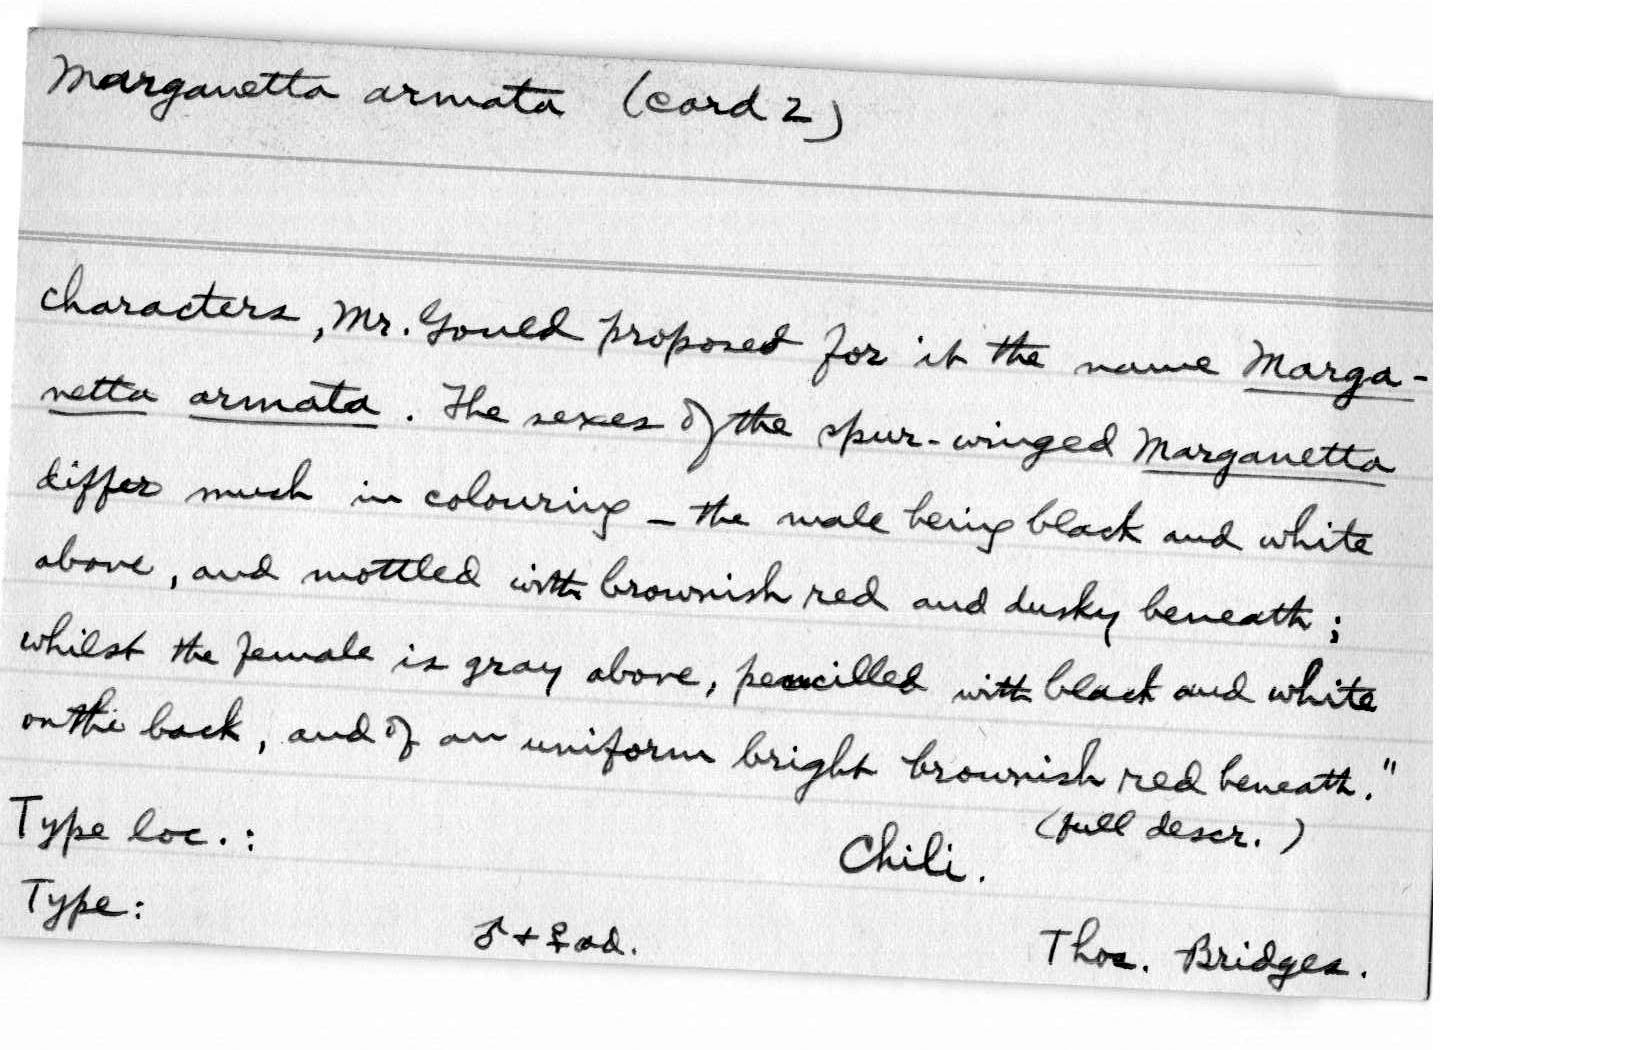 Marganetta armata (card 2)
characters, Mr. Gould proposed for it the name Marga-
netta armata. The sexes of the spur-winged Marganetta
differ much in colouring – the male being black and white
above, and mottled with brownish red and dusky beneath;
whilst the female is gray above, pencilled with black and white
on the back, and of an uniform bright brownish red beneath."
(full descr.)
Type loc.: Chili.
Type: ♂ + ♀ ad. Thos. Bridges.